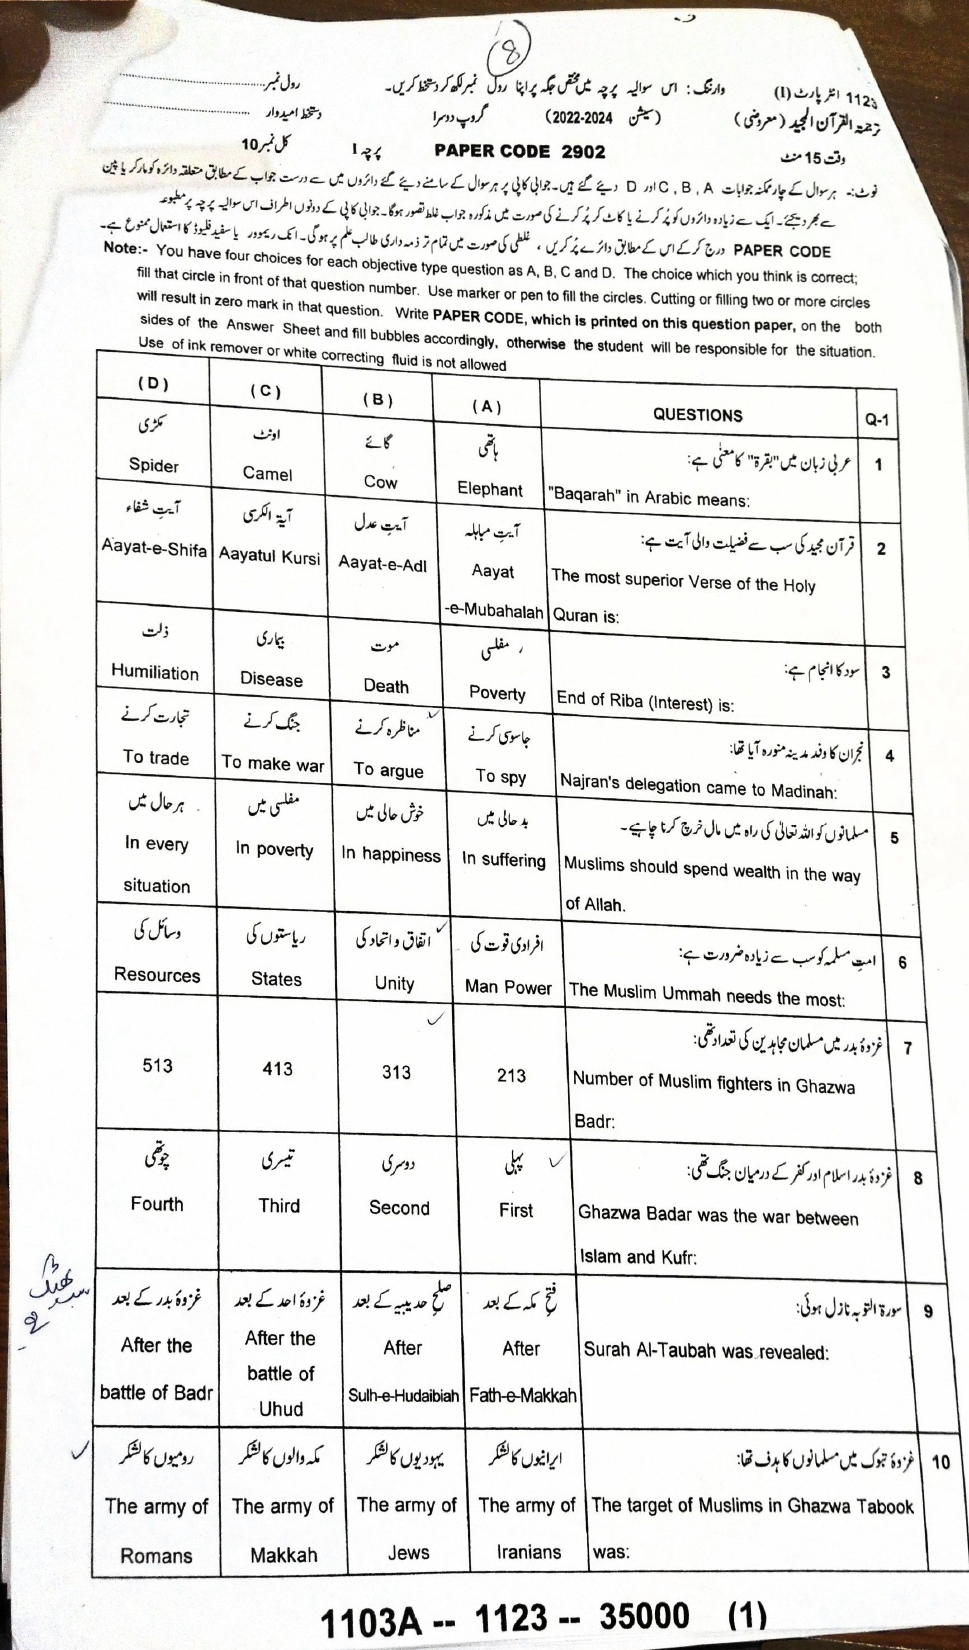 8
1123 انٹر پارٹ (I) وارننگ: اس سوالیہ پرچہ میں مختص جگہ پر اپنا رول نمبر لکھ کر دستخط کریں۔ رول نمبر
ترجمۃ القرآن المجید (معروضی) (سیشن 2022-2024) گروپ دوسرا دستخط امیدوار
وقت 15 منٹ PAPER CODE 2902 پرچہ I کل نمبر 10
نوٹ:۔ ہر سوال کے چار ممکنہ جوابات C , B , A اور D دیئے گئے ہیں۔ جوابی کاپی پر ہر سوال کے سامنے دیئے گئے دائروں میں سے درست جواب کے مطابق متعلقہ دائرہ کو مارکر یا پین
سے بھر دیجئے۔ ایک سے زیادہ دائروں کو پُر کرنے یا کاٹ کر پُر کرنے کی صورت میں مذکورہ جواب غلط تصور ہوگا۔ جوابی کاپی کے دونوں اطراف اس سوالیہ پرچہ پر مطبوعہ
PAPER CODE درج کر کے اس کے مطابق دائرے پُر کریں ، غلطی کی صورت میں تمام تر ذمہ داری طالب علم پر ہوگی۔ انک ریموور یا سفید فلیوڈ کا استعمال ممنوع ہے۔
Note:- You have four choices for each objective type question as A, B, C and D. The choice which you think is correct;
fill that circle in front of that question number. Use marker or pen to fill the circles. Cutting or filling two or more circles
will result in zero mark in that question. Write PAPER CODE, which is printed on this question paper, on the both
sides of the Answer Sheet and fill bubbles accordingly, otherwise the student will be responsible for the situation.
Use of ink remover or white correcting fluid is not allowed
(D) (C) (B) (A) QUESTIONS Q-1
مکڑی اونٹ گائے ہاتھی عربی زبان میں "بقرة" کا معنٰی ہے: 1
Spider Camel Cow Elephant "Baqarah" in Arabic means:
آیتِ شفاء آیۃ الکرسی آیتِ عدل آیتِ مباہلہ قرآن مجید کی سب سے فضیلت والی آیت ہے: 2
Aayat-e-Shifa Aayatul Kursi Aayat-e-Adl Aayat The most superior Verse of the Holy
-e-Mubahalah Quran is:
ذلت بیماری موت مفلسی سود کا انجام ہے: 3
Humiliation Disease Death Poverty End of Riba (Interest) is:
تجارت کرنے جنگ کرنے مناظرہ کرنے جاسوسی کرنے نجران کا وفد مدینہ منورہ آیا تھا: 4
To trade To make war To argue To spy Najran's delegation came to Madinah:
ہر حال میں مفلسی میں خوش حالی میں بد حالی میں مسلمانوں کو اللہ تعالیٰ کی راہ میں مال خرچ کرنا چاہیے۔ 5
In every In poverty In happiness In suffering Muslims should spend wealth in the way
situation of Allah.
وسائل کی ریاستوں کی اتفاق و اتحاد کی افرادی قوت کی امتِ مسلمہ کو سب سے زیادہ ضرورت ہے: 6
Resources States Unity Man Power The Muslim Ummah needs the most:
غزوۂ بدر میں مسلمان مجاہدین کی تعداد تھی: 7
513 413 313 213 Number of Muslim fighters in Ghazwa
Badr:
چوتھی تیسری دوسری پہلی غزوۂ بدر اسلام اور کفر کے درمیان جنگ تھی: 8
Fourth Third Second First Ghazwa Badar was the war between
Islam and Kufr:
غزوۂ بدر کے بعد غزوۂ احد کے بعد صلحِ حدیبیہ کے بعد فتحِ مکہ کے بعد سورۃ التوبہ نازل ہوئی: 9
After the After the After After Surah Al-Taubah was revealed:
battle of Badr battle of Sulh-e-Hudaibiah Fath-e-Makkah
Uhud
رومیوں کا لشکر مکہ والوں کا لشکر یہودیوں کا لشکر ایرانیوں کا لشکر غزوۂ تبوک میں مسلمانوں کا ہدف تھا: 10
The army of The army of The army of The army of The target of Muslims in Ghazwa Tabook
Romans Makkah Jews Iranians was:
1103A -- 1123 -- 35000 (1)